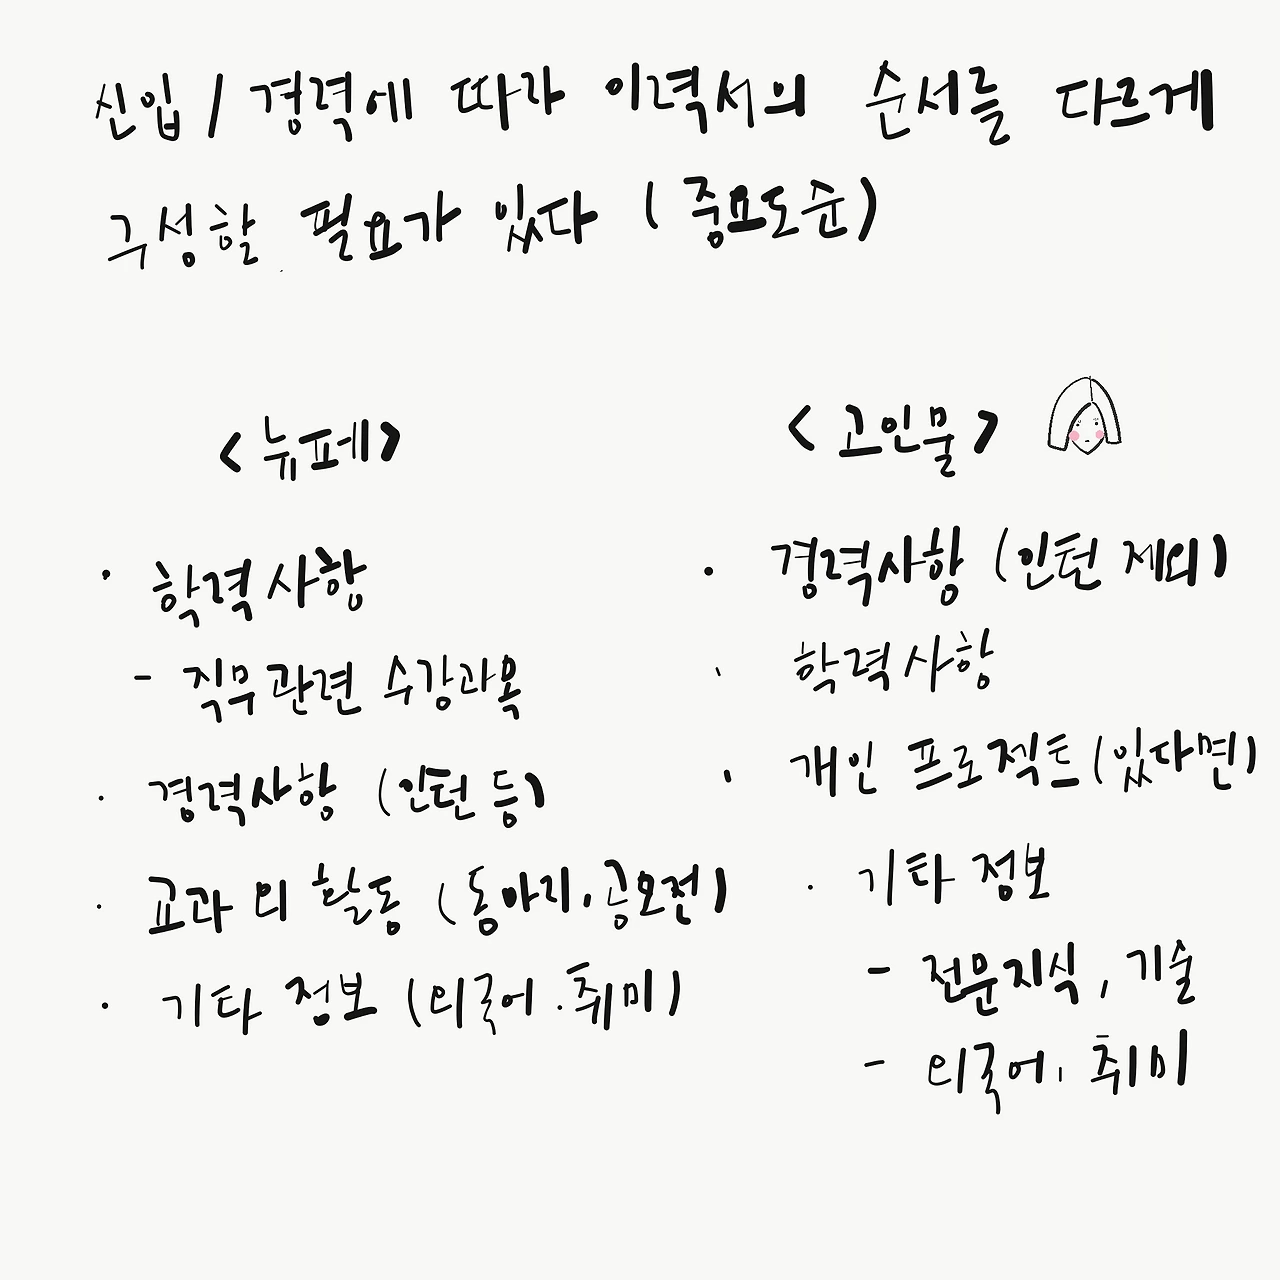 신입 / 경력에 따라 이력서의 순서를 다르게
구성할 필요가 있다 (중요도순)
<뉴페>
· 학력사항
- 직무관련 수강과목
· 경력사항 (인턴 등)
· 교과 외 활동 (동아리, 공모전)
· 기타 정보 (외국어, 취미)
<고인물>
· 경력사항 (인턴 제외)
· 학력사항
· 개인 프로젝트 (있다면)
· 기타 정보
- 전문지식, 기술
- 외국어, 취미